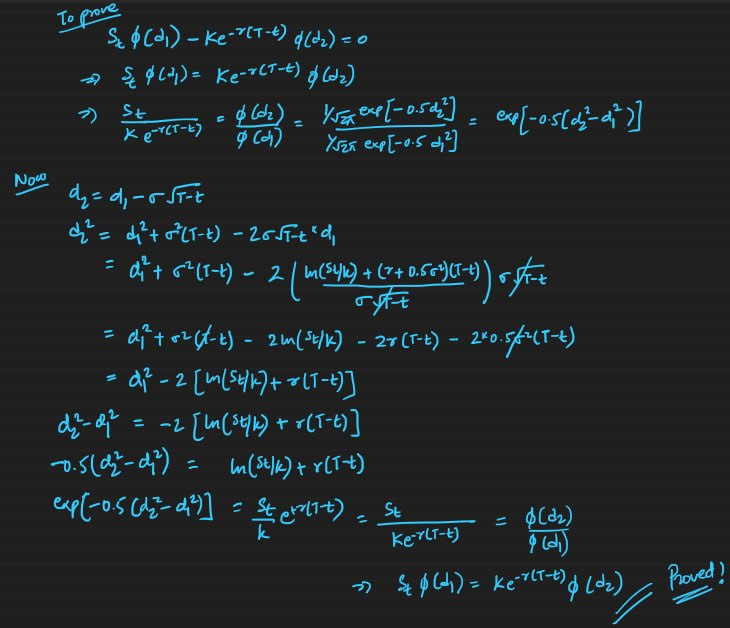 To prove
S_t ϕ(d₁) − Ke^{-r(T-t)} ϕ(d₂) = 0
⇒ S_t ϕ(d₁) = Ke^{-r(T-t)} ϕ(d₂)
⇒ S_t / Ke^{-r(T-t)} = ϕ(d₂) / ϕ(d₁) = 1/√2π exp[-0.5d₂²] / 1/√2π exp[-0.5 d₁²] = exp[-0.5(d₂² - d₁²)]
Now d₂ = d₁ − σ√T-t
d₂² = d₁² + σ²(T-t) − 2σ√T-t * d₁
= d₁² + σ²(T-t) − 2 ( ln(St/k) + (r + 0.5σ²)(T-t) / σ√T-t ) σ√T-t
= d₁² + σ²(T-t) − 2ln(St/k) − 2r(T-t) − 2*0.5σ²(T-t)
= d₁² − 2 [ln(St/k) + r(T-t)]
d₂² - d₁² = −2 [ln(St/k) + r(T-t)]
-0.5(d₂² - d₁²) = ln(St/k) + r(T-t)
exp[-0.5(d₂² - d₁²)] = St/k e^{+r(T-t)} = St / Ke^{-r(T-t)} = ϕ(d₂) / ϕ(d₁)
⇒ S_t ϕ(d₁) = Ke^{-r(T-t)} ϕ(d₂) Proved!